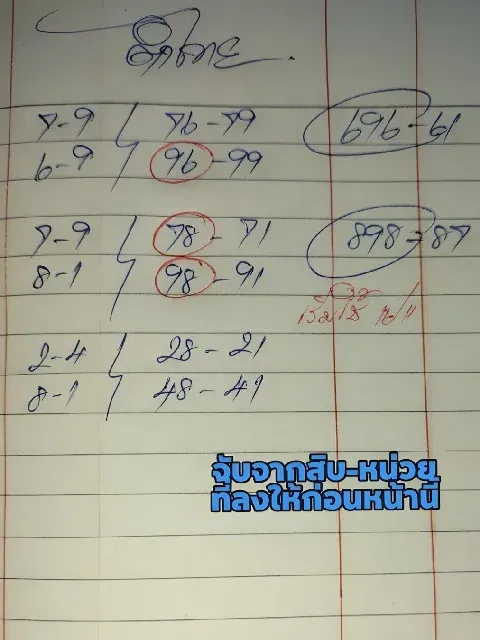 7-9 / 76-79 696-61
6-9 / 96-99
7-9 / 78-71 898-87
8-1 / 98-91
2-4 / 28-21
8-1 / 48-41
จับจากสิบ-หน่วย
ที่ลงให้ก่อนหน้านี้